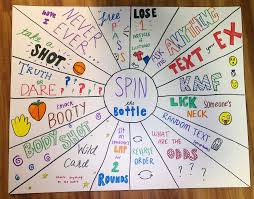 SPIN
the
Bottle
NEVER
EVER...
free
PASS
LOSE
ASK me
ANYTHING
TEXT your
EX
KMF
LICK Someone's
NECK
RANDOM TEXT
WHAT ARE THE
ODDS
? ? ?
REVERSE
ORDER
Sit on
someone's
LAP for
2
ROUNDS
Wild
Card
BODY SHOT
smack
BOOTY
TRUTH
or
DARE ? ? ?
take a
SHOT...